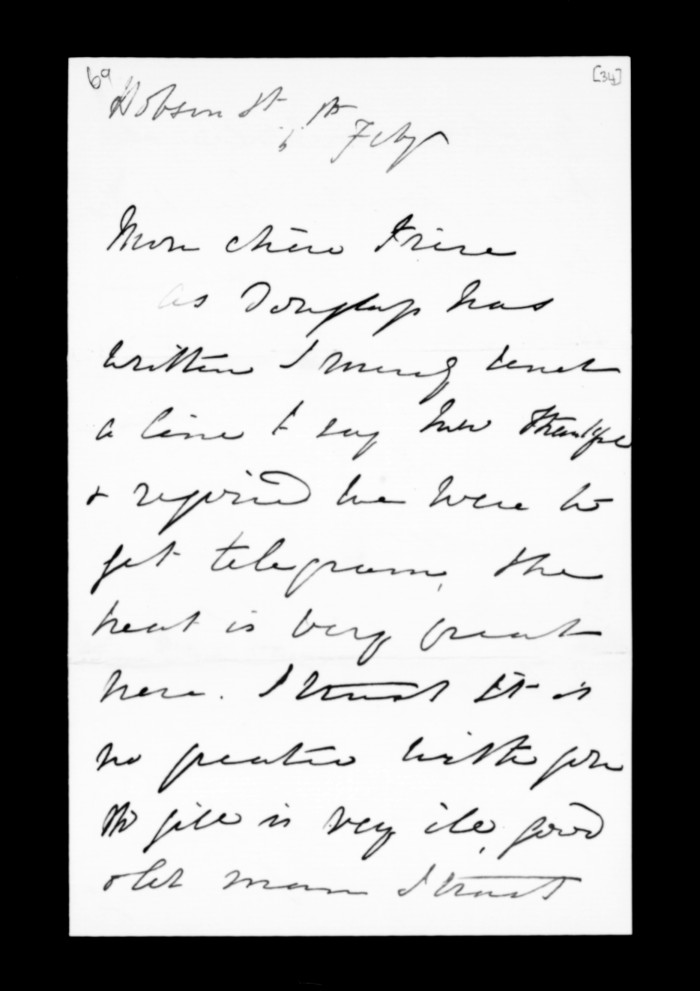 69
[34]
Hobson St
6th Feby
Mon chère Frère
as Douglass has
written I merely send
a line to say how thankful
& rejoiced we were to
get telegram, the
heat is very great
here. I trust it is
no greater with you
Mr Gill is very ill, good
old man I trust